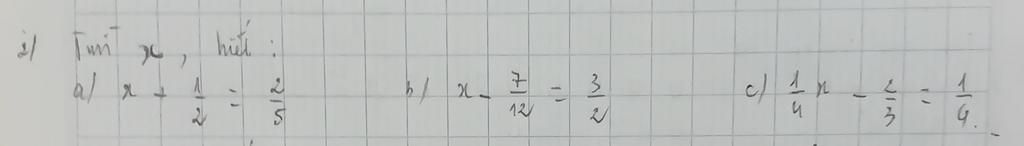 2) Tìm x, biết:
a) x + 1/2 = 2/5 b) x - 7/12 = 3/2 c) 1/4 x - 2/3 = 1/4.